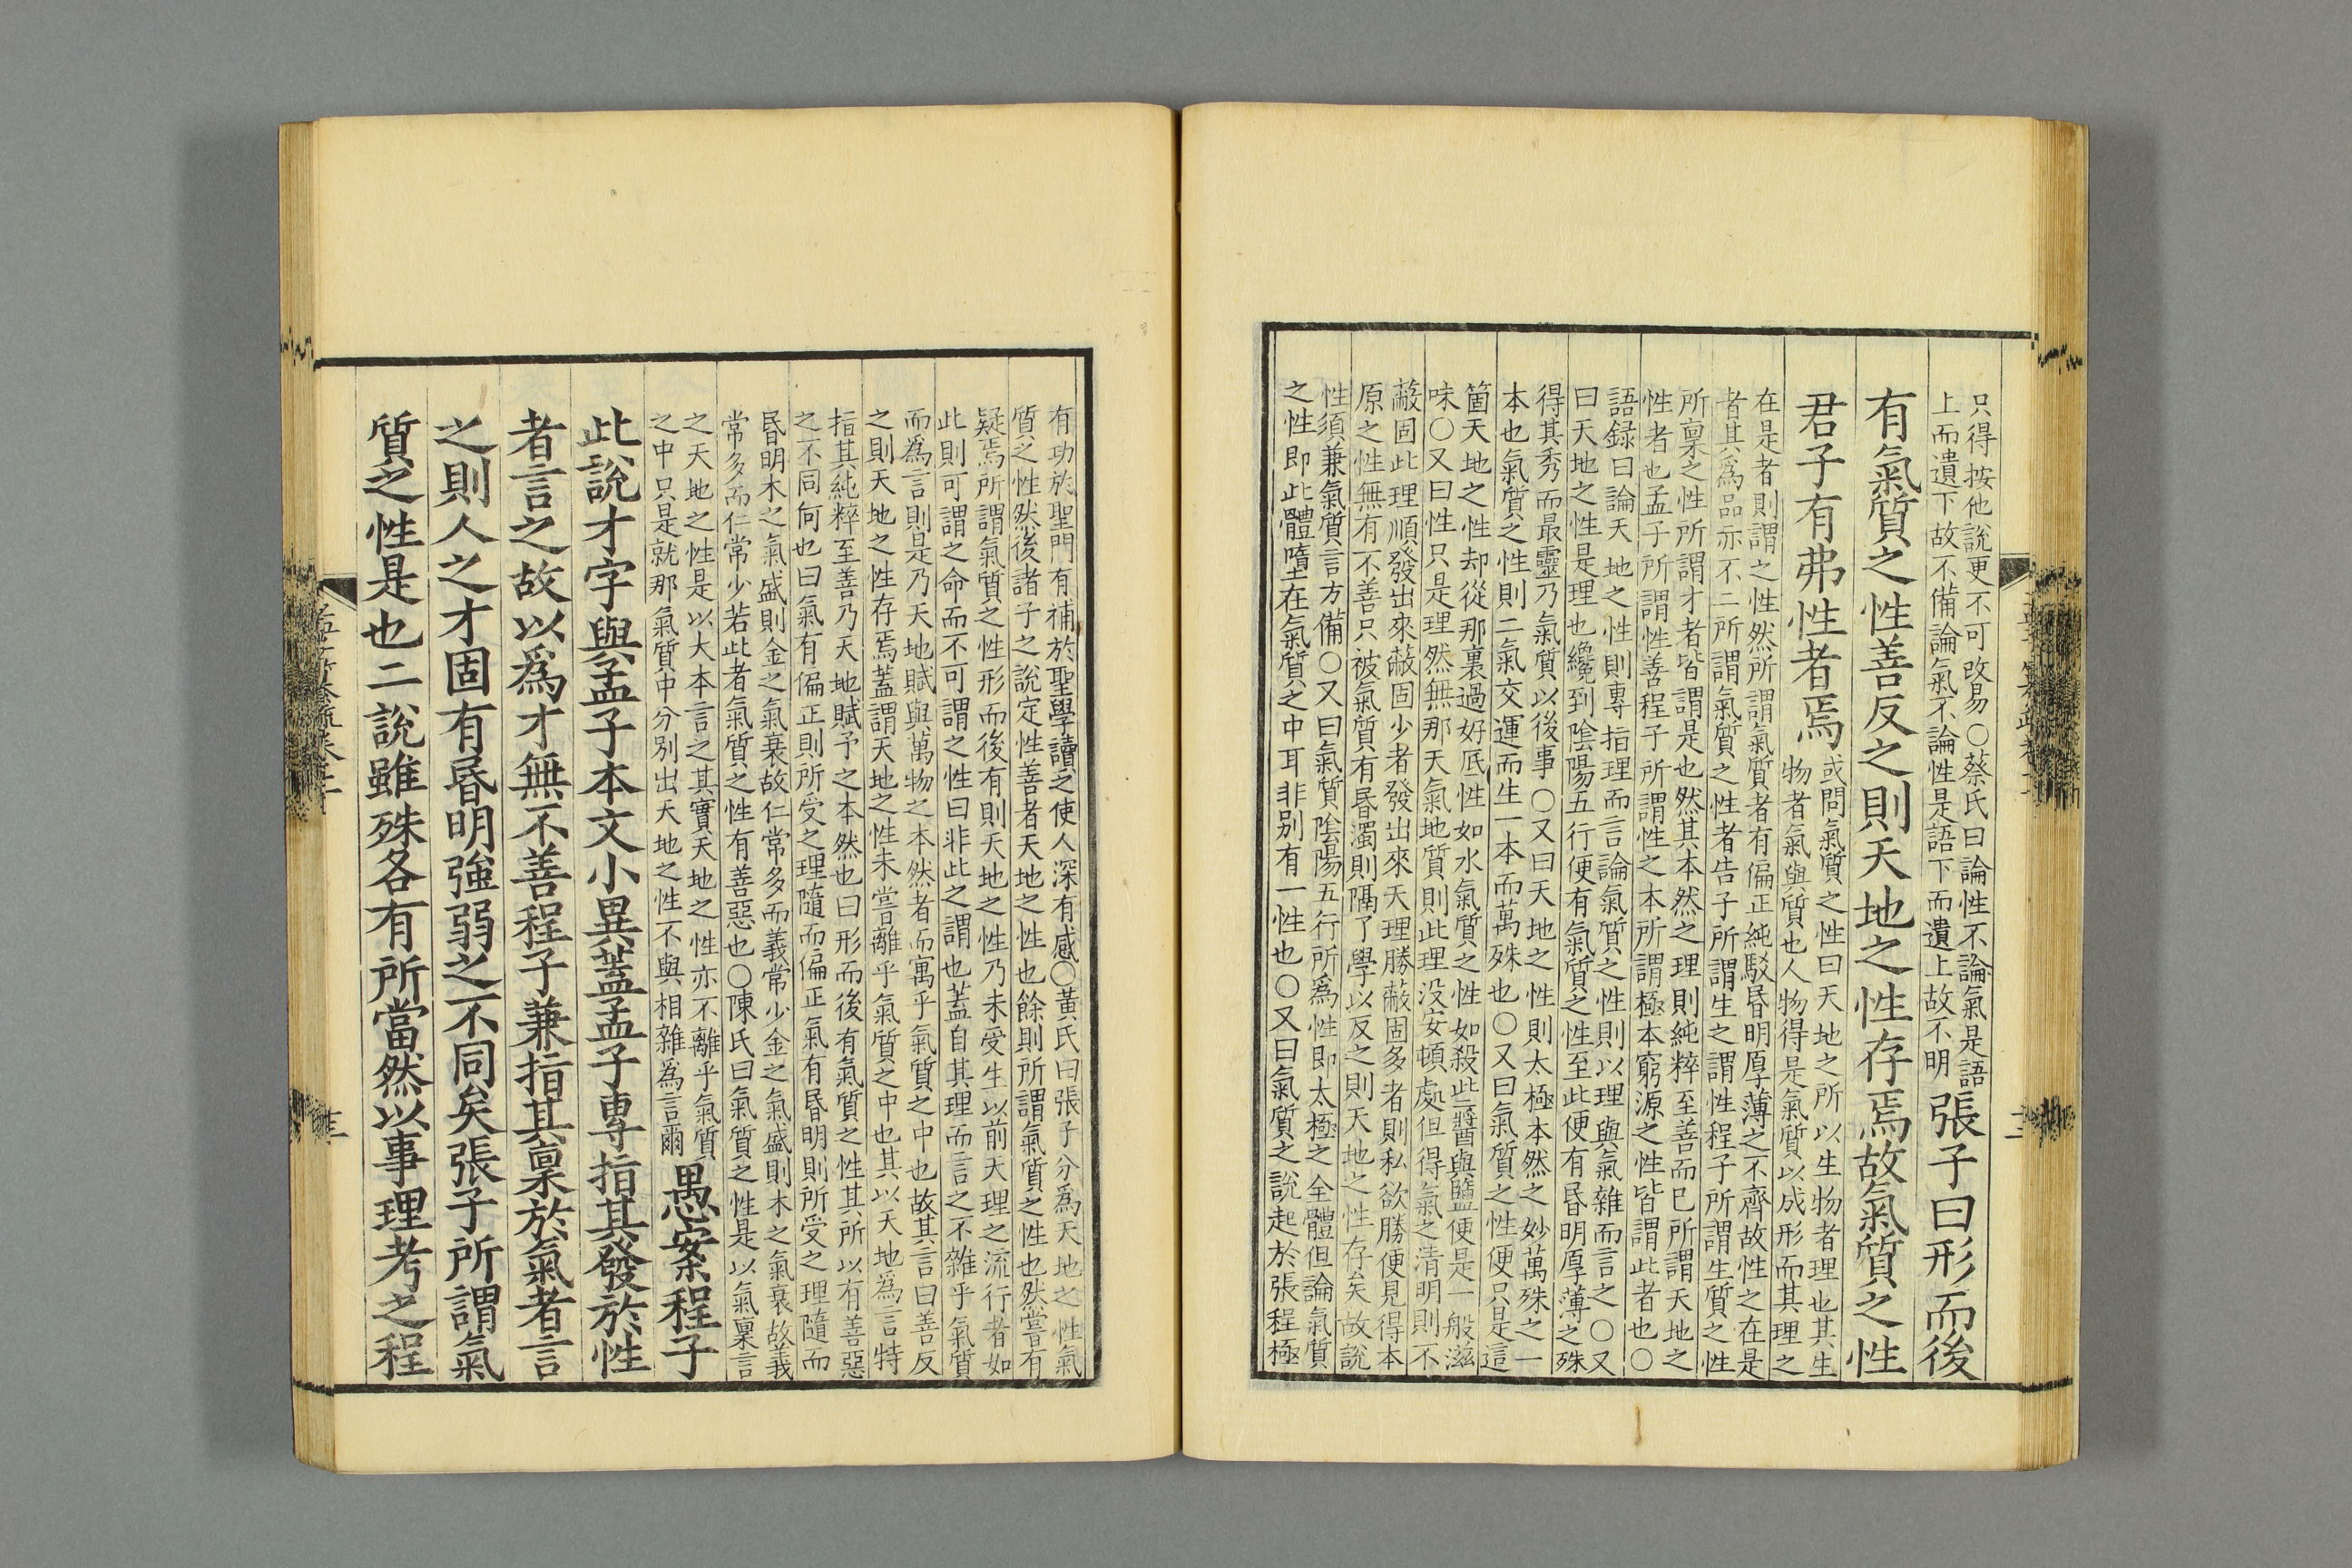 只得按他說更不可改易○蔡氏曰論性不論氣是語
上而遺下故不備論氣不論性是語下而遺上故不明
張子曰形而後
有氣質之性善反之則天地之性存焉故氣質之性
君子有弗性者焉
或問氣質之性曰天地之所以生物者理也其生
物者氣與質也人物得是氣質以成形而其理之
在是者則謂之性然所謂氣質者有偏正純駁昏明厚薄之不齊故性之在是
者其為品亦不二所謂氣質之性者告子所謂生之謂性程子所謂生質之性
所稟之性所謂才者皆謂是也然其本然之理則純粹至善而已所謂天地之
性者也孟子所謂性善程子所謂性之本所謂極本窮源之性皆謂此者也○
語録曰論天地之性則專指理而言論氣質之性則以理與氣雜而言之○又
曰天地之性是理也纔到陰陽五行便有氣質之性至此便有昏明厚薄之殊
得其秀而最靈乃氣質以後事○又曰天地之性則太極本然之妙萬殊之一
本也氣質之性則二氣交運而生一本而萬殊也○又曰氣質之性便只是這
箇天地之性却從那裏過好底性如水氣質之性如殺些醬與鹽便是一般滋
味○又曰性只是理然無那天氣地質則此理没安頓處但得氣之清明則不
蔽固此理順發出來蔽固少者發出來天理勝蔽固多者則私欲勝便見得本
原之性無有不善只被氣質有昏濁則隔了學以反之則天地之性存矣故說
性須兼氣質言方備○又曰氣質陰陽五行所為性即太極之全體但論氣質
之性即此體墮在氣質之中耳非别有一性也○又曰氣質之說起於張程極
有功於聖門有補於聖學讀之使人深有感○黃氏曰張子分為天地之性氣
質之性然後諸子之說定性善者天地之性也餘則所謂氣質之性也然嘗有
疑焉所謂氣質之性形而後有則天地之性乃未受生以前天理之流行者如
此則可謂之命而不可謂之性曰非此之謂也蓋自其理而言之不雜乎氣質
而為言則是乃天地賦與萬物之本然者而寓乎氣質之中也故其言曰善反
之則天地之性存焉蓋謂天地之性未嘗離乎氣質之中也其以天地為言特
指其純粹至善乃天地賦予之本然也曰形而後有氣質之性其所以有善惡
之不同何也曰氣有偏正則所受之理隨而偏正氣有昏明則所受之理隨而
昏明木之氣盛則金之氣衰故仁常多而義常少金之氣盛則木之氣衰故義
常多而仁常少若此者氣質之性有善惡也○陳氏曰氣質之性是以氣稟言
之天地之性是以大本言之其實天地之性亦不離乎氣質
之中只是就那氣質中分別出天地之性不與相雜為言爾
愚案程子
此說才字與孟子本文小異蓋孟子專指其發於性
者言之故以為才無不善程子兼指其稟於氣者言
之則人之才固有昏明強弱之不同矣張子所謂氣
質之性是也二說雖殊各有所當然以事理考之程